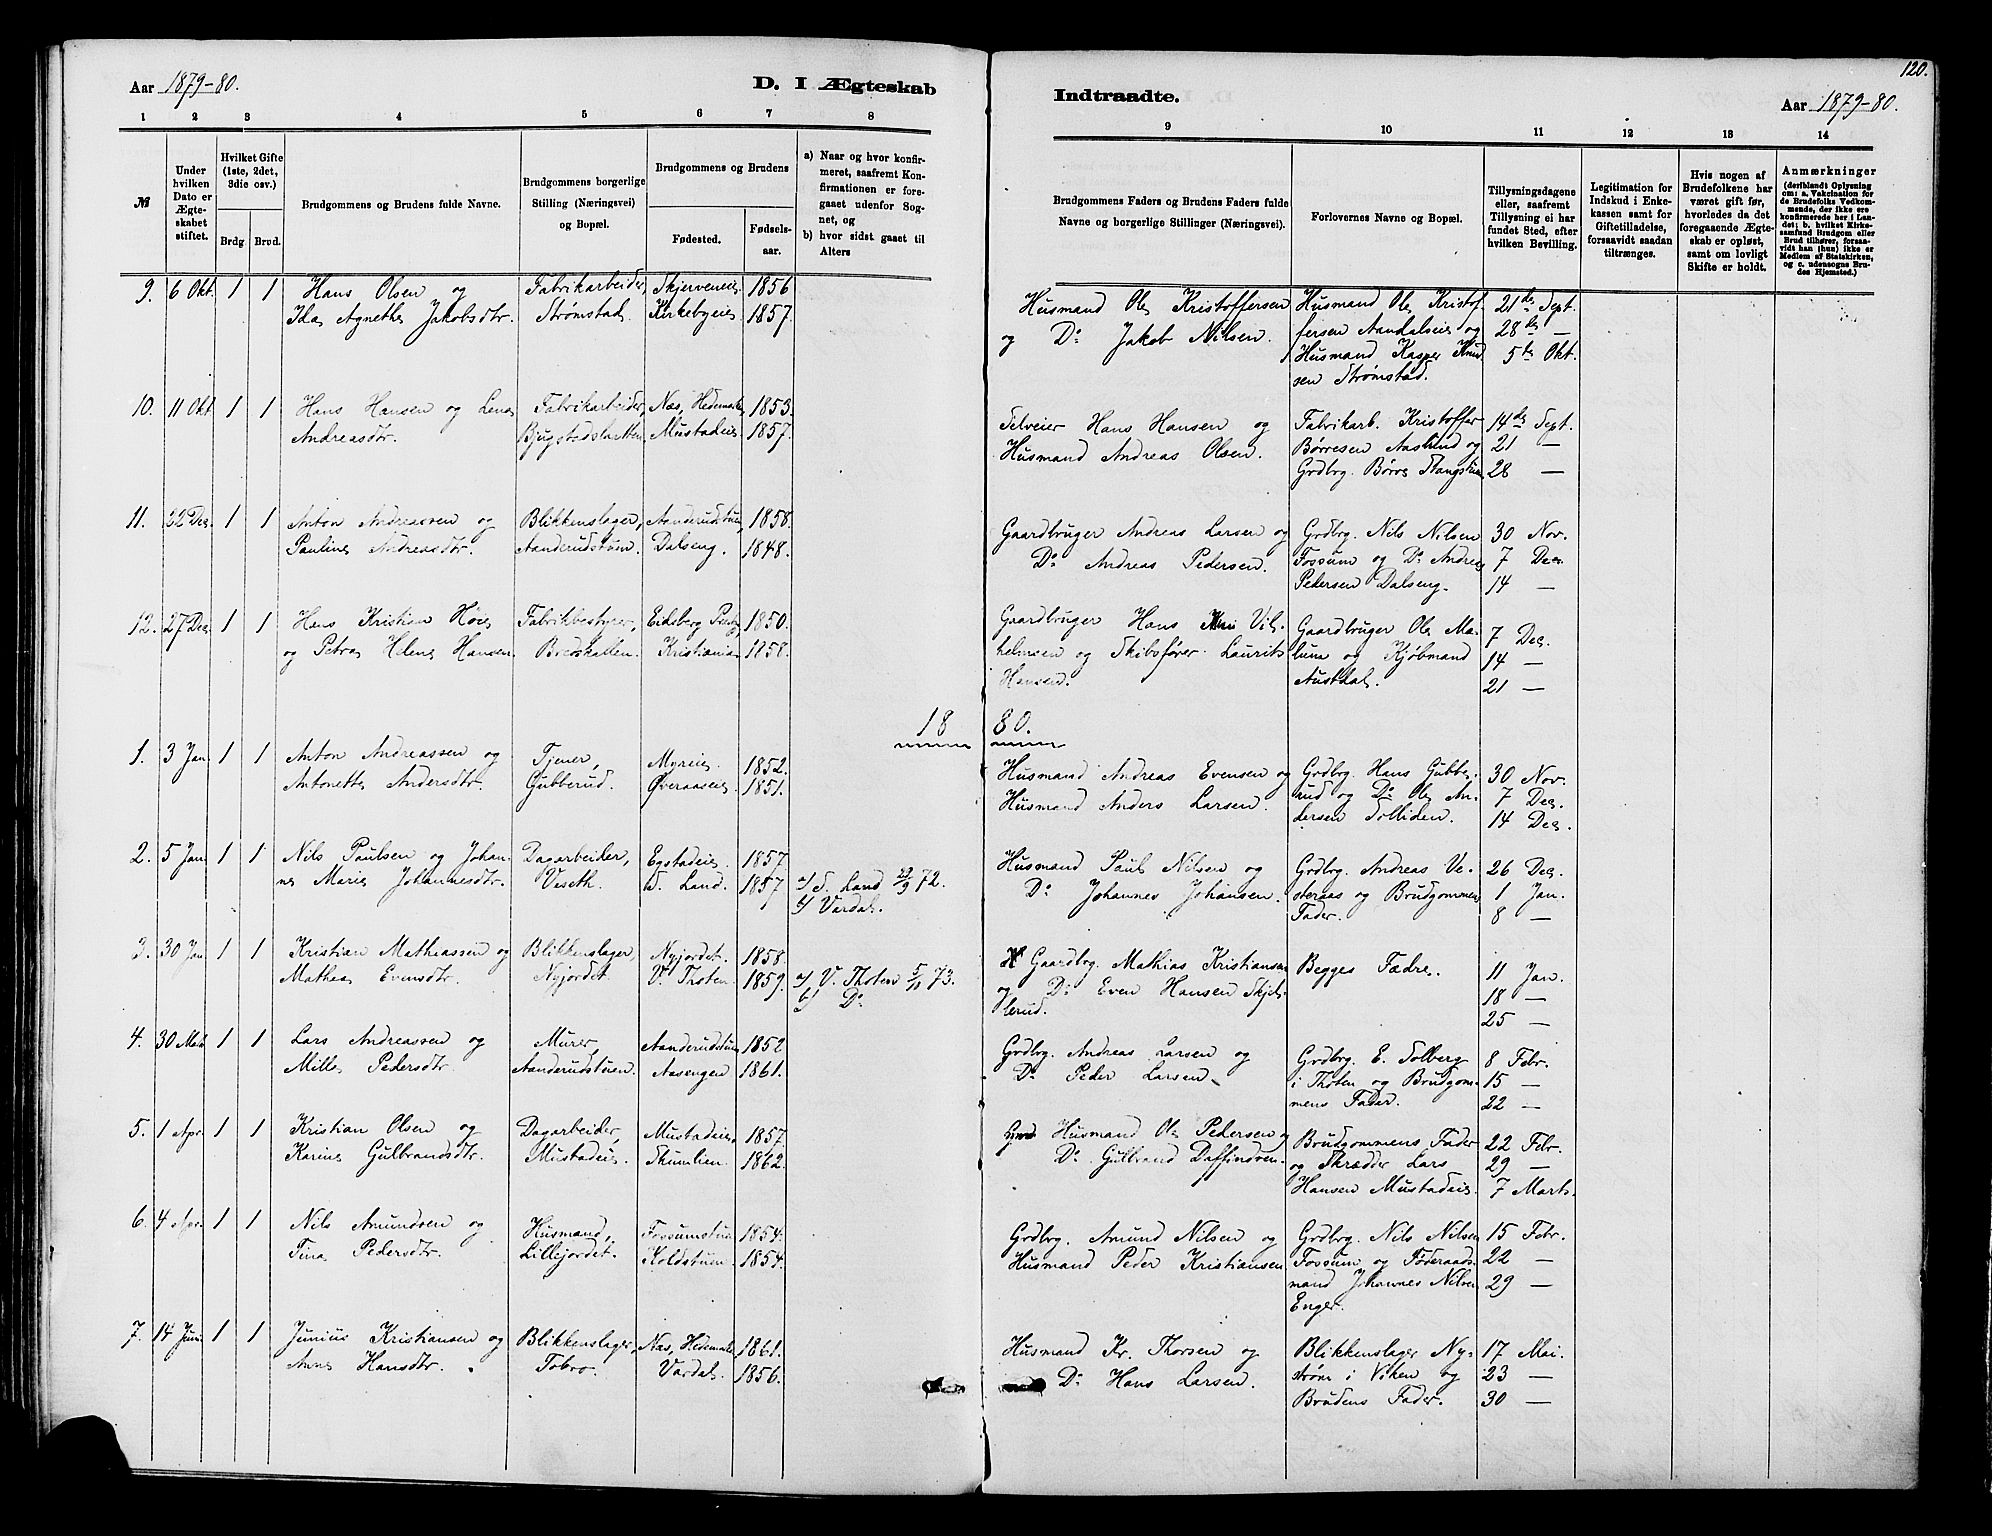 120.
Aar 1879-80.
D. I Ægteskab
Indtraadte.
Aar 1879-80.
1 2 3 4 5 6 7 8
9 10 11 12 13 14
№
Under hvilken Dato er Ægteskabet stiftet.
Hvilket Gifte (1ste, 2det, 3die osv.)
Brdg. Brud.
Brudgommens og Brudens fulde Navne.
Brudgommens borgerlige Stilling (Næringsvei) og Bopæl.
Brudgommens og Brudens
Fødested.
Fødselsaar.
a) Naar og hvor konfirmeret, saafremt Konfirmationen er foregaaet udenfor Sognet, og
b) hvor sidst gaaet til Alters
Brudgommens Faders og Brudens Faders fulde Navne og borgerlige Stillinger (Næringsvei).
Forlovernes Navne og Bopæl.
Tillysningsdagene eller, saafremt Tillysning ei har fundet Sted, efter hvilken Bevilling.
Legitimation for Indskud i Enkekassen samt for Giftetilladelse, forsaavidt saadan tiltrænges.
Hvis nogen af Brudefolkene har været gift før, hvorledes da det foregaaende Ægteskab er opløst, samt om lovligt Skifte er holdt.
Anmærkninger
(deriblandt Oplysning om: a. Vakcination for de Brudefolks Vedkommende, der ikke ere konfirmerede her i Landet; b. hvilket Kirkesamfund Brudgom eller Brud tilhører, forsaavidt han (hun) ikke er Medlem af Statskirken, og c. udensogns Brudes Hjemsted.)
9. 6 Okt. 1 1 Hans Olsen og Fabrikarbeider, Skjerveneie 1856
Ida Agnethe Jakobsdtr. Strømstad. Kirkebyeie 1857.
Husmand Ole Kristoffersen Husmand Ole Kristof- 21de Sept.
og Do Jakob Nilsen. fersen Aandalseie og 28de —
Husmand Kasper Knud- 5te Okt.
sen Strømstad.
10. 11 Okt 1 1 Hans Hansen og Lena Fabrikarbeider, Næs, Hedemarken 1853.
Andreasdtr. Bjugstadslatten Mustadeie 1857.
Selveier Hans Hansen og Fabrikarb. Kristoffer 14de Sept.
Husmand Andreas Olsen. Børresen Aaslund og 21 —
Grdbrg. Børre Stangstuen 28 —
11. 22 Dec. 1 1 Anton Andreassen og Blikkenslager, Aanderudstuen, 1858.
Pauline Andreasdtr. Aanderudstuen. Dalseng. 1848.
Gaardbruger Andreas Larsen og Grdbrg. Nils Nilsen 30 Nov.
Do Andreas Pedersen. Fossum og Do Andreas 7 Dec.
Pedersen Dalseng. 14 —
12. 27 Dec 1 1 Hans Kristian Høie Fabrikbestyrer, Eidsberg Præstg. 1850.
og Petra Helene Hansen Bredskallen. Kristiania 1858.
Gaardbruger Hans Vil- Gaardbruger Ole Ma- 7 Dec.
helmsen og Skibsfører Laurits lum og Kjøbmand 14 —
Hansen. Austdal. 21 —
18 80.
1. 3 Jan 1 1 Anton Andreassen og Tjener, Myreie 1852.
Antonette Andersdtr. Gubberud. Øveraaseie 1851.
Husmand Andreas Evensen og Grdbrg. Hans Gubbe- 30 Nov.
Husmand Anders Larsen. rud og Do Ole An- 7 Dec.
dersen Solliden. 14 Dec.
2. 5 Jan 1 1 Nils Paulsen og Johan- Dagarbeider, Egstadeie. 1857
ne Marie Johannesdtr. Veseth. S. Land. 1857 a/ S. Land 29/9 72.
b/ Vardal.
Husmand Paul Nilsen og Grdbrg. Andreas Ve- 26 Dec.
Do Johannes Johansen. steraas og Brudgommens 1 Jan.
Fader. 8 —
3. 30 Jan 1 1 Kristian Mathiassen og Blikkenslager, Nyjordet. 1858.
Mathea Evensdtr. Nyjordet V. Thoten. 1859. a/ V. Thoten 5/11 73.
b/ Do
Gaardbrg. Mathias Kristiansen Begges Fædre. 11 Jan.
og Do Even Hansen Skjel- 18 —
lerud. 25 —
4. 30 Mai 1 1 Lars Andreassen og Murer, Aanderudstuen 1852
Mille Pedersdtr. Aanderudstuen. Aasengen 1861.
Grdbrg. Andreas Larsen og Grdbrg. E. Solberg 8 Febr.
Do Peder Larsen. i Thoten og Brudgom- 15 —
mens Fader. 22 —
5. 1 Apr. 1 1 Kristian Olsen og Dagarbeider, Mustadeie 1857.
Karine Gulbrandsdtr. Mustadeie. Skumlien. 1862.
Husmand Ole Pedersen og Brudgommens Fader 22 Febr.
Do Gulbrand Daffindsen. og Skrædder Lars 29 —
Hansen Mustadeie. 7 Marts.
6. 4 Apr. 1 1 Nils Amundsen og Husmand, Fossumstuen 1854.
Tina Pedersdtr. Lillejordet. Koldstuen 1854.
Grdbrg. Amund Nilsen og Grdbrg. Nils Nilsen 15 Febr.
Husmand Peder Kristiansen Fossum og Føderaads- 22 —
mand Johannes Nilsen 29 —
Enger.
7. 14 Juni 1 1 Junius Kristiansen og Blikkenslager, Næs, Hedemarken 1861.
Anne Hansdtr. Tobro. Vardal. 1856.
Husmand Kr. Thorsen og Blikkenslager Ny- 17 Mai.
Do Hans Larsen. strøm i Viken og 23 —
Brudens Fader. 30 —